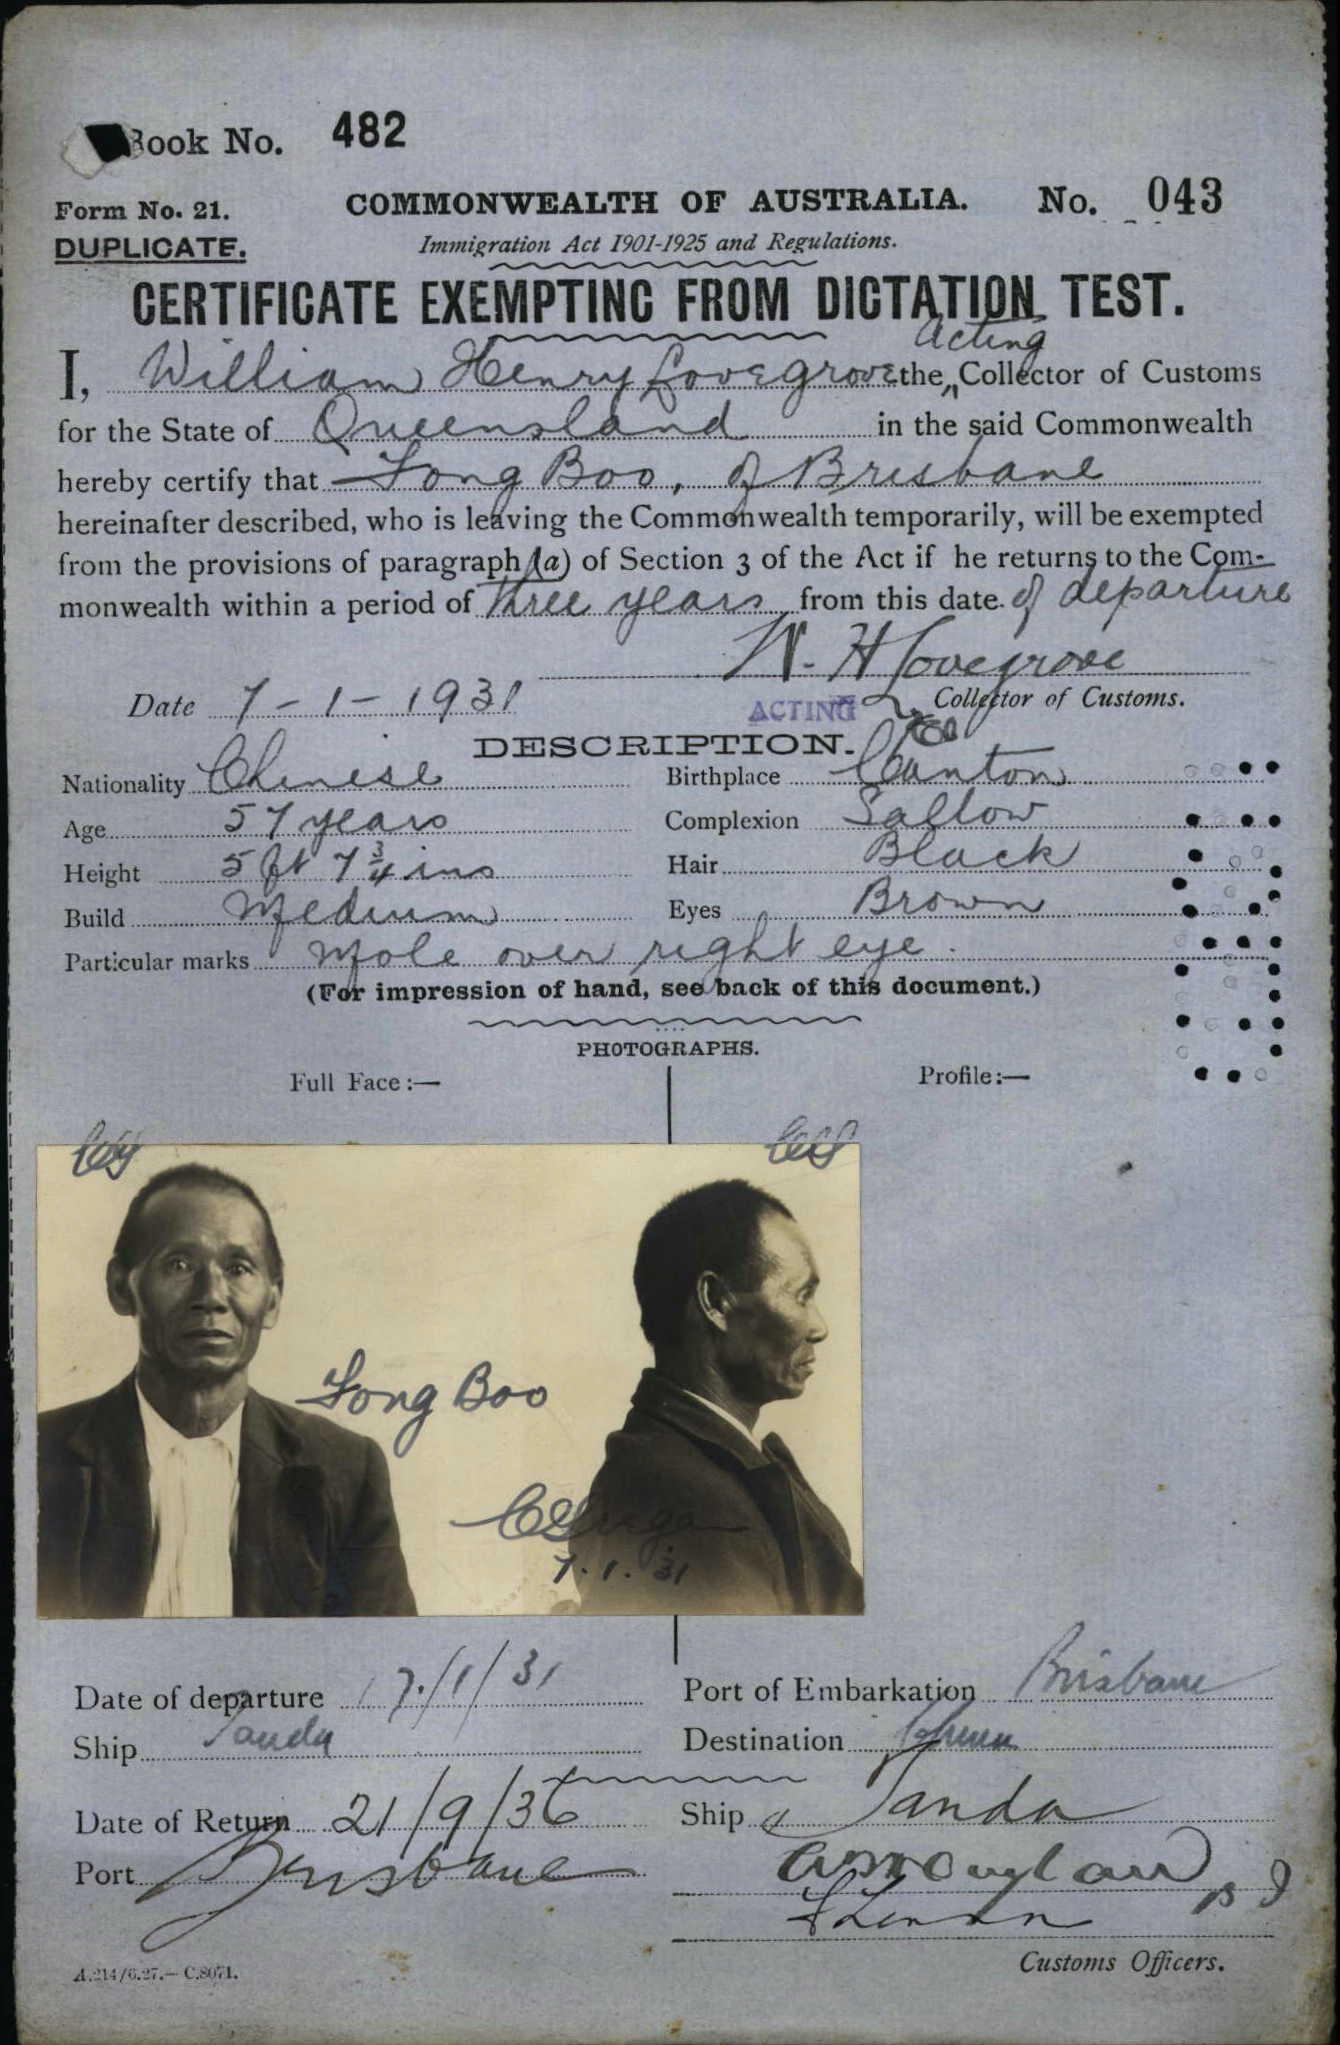 Book No. 482
Form No. 21. COMMONWEALTH OF AUSTRALIA. No. 043
DUPLICATE. Immigration Act 1901-1925 and Regulations.
CERTIFICATE EXEMPTING FROM DICTATION TEST.
Acting
I, William Henry Lovegrove the Collector of Customs
for the State of Queensland in the said Commonwealth
hereby certify that Fong Boo, of Brisbane
hereinafter described, who is leaving the Commonwealth temporarily, will be exempted
from the provisions of paragraph (a) of Section 3 of the Act if he returns to the Com-
monwealth within a period of three years from this date of departure
W. H Lovegrove
Date 7-1-1931 ACTING Collector of Customs.
DESCRIPTION.
Nationality Chinese Birthplace Canton
Age 57 years Complexion Sallow
Height 5 ft 7 3/4 ins Hair Black
Build Medium Eyes Brown
Particular marks Mole over right eye.
(For impression of hand, see back of this document.)
PHOTOGRAPHS.
Full Face:— Profile:—
Fong Boo
7.1.31
Date of departure 17/1/31 Port of Embarkation Brisbane
Ship Tanda Destination China
Date of Return 21/9/36 Ship Tanda
Port Brisbane
Customs Officers.
A.214/6.27.—C.8071.